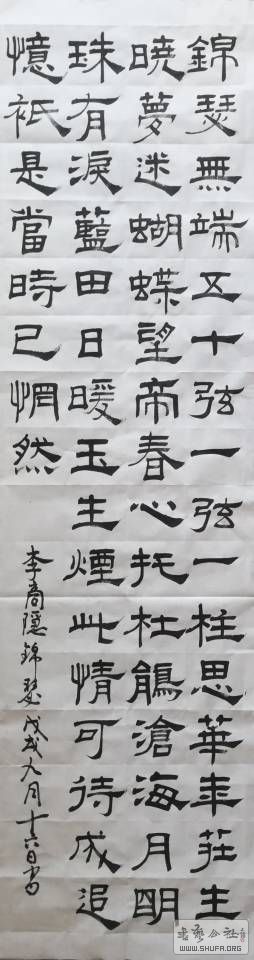 錦瑟無端五十弦一弦一柱思華年莊生
曉夢迷蝴蝶望帝春心托杜鵑滄海月明
珠有淚藍田日暖玉生煙此情可待成追
憶祇是當時已惘然
李商隱錦瑟戊戌九月十六日书
書藝公社
WWW.SHUFA.ORG